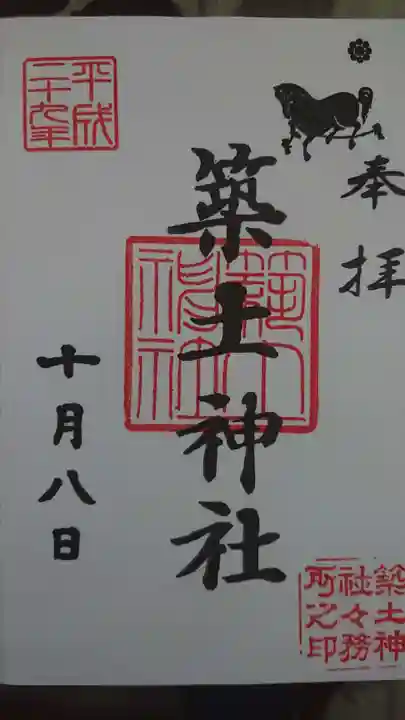 奉拝
築土神社
築土神社
平成二十九年
十月八日
築土神
社々務
所之印